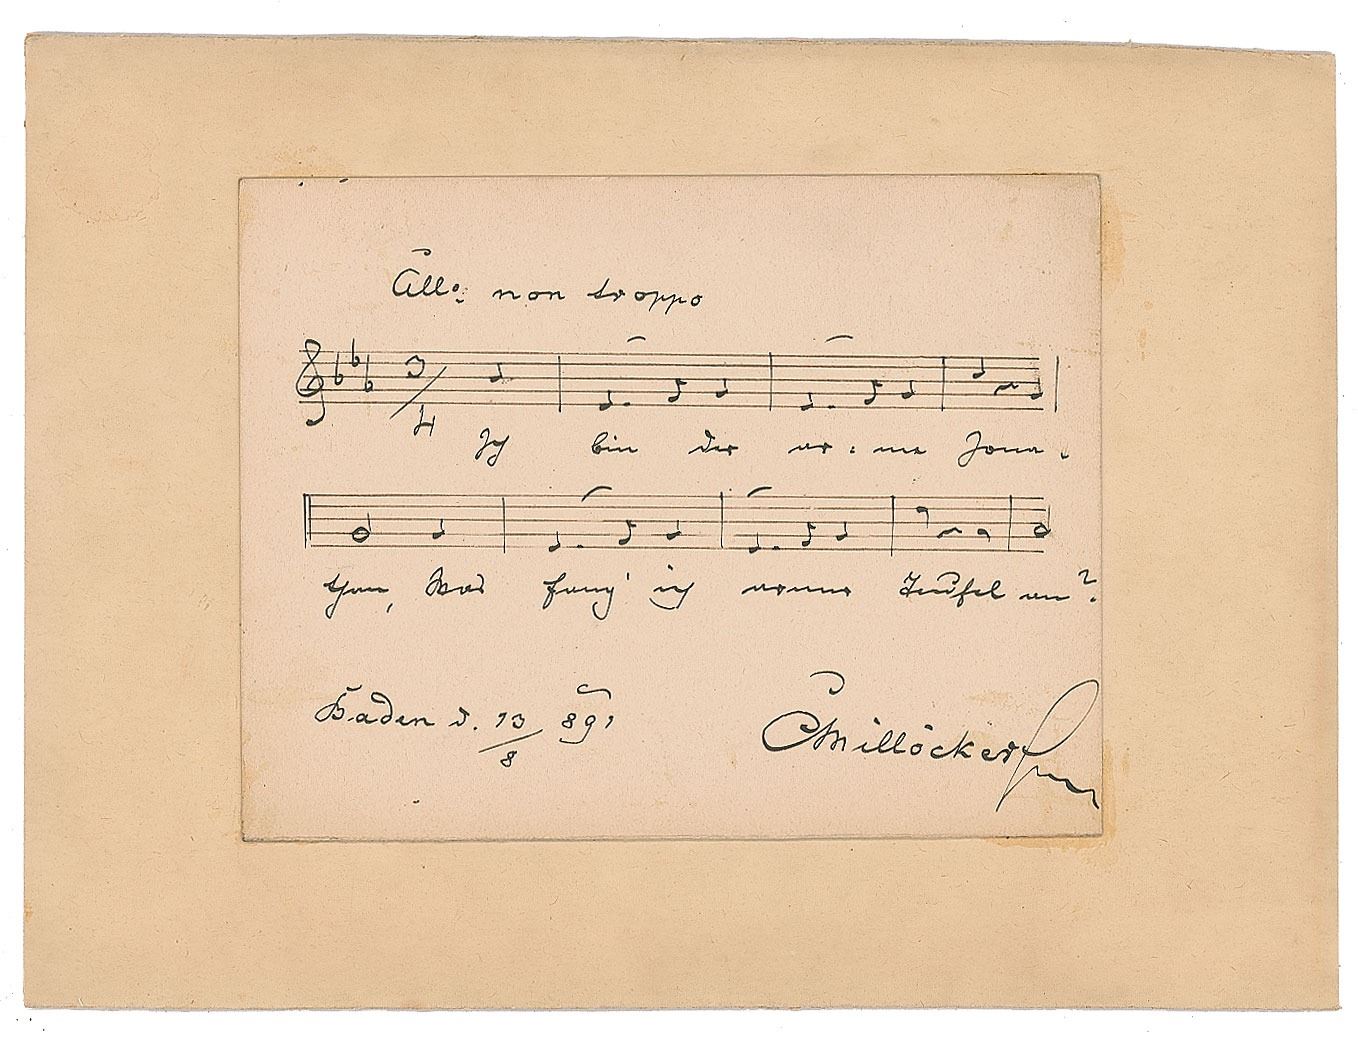 Allo: non troppo
3/4
Ich bin der ar: me Jona-
than, Was fang' ich armer Teufel an?
Baden d. 13/8 891
CMillöcker